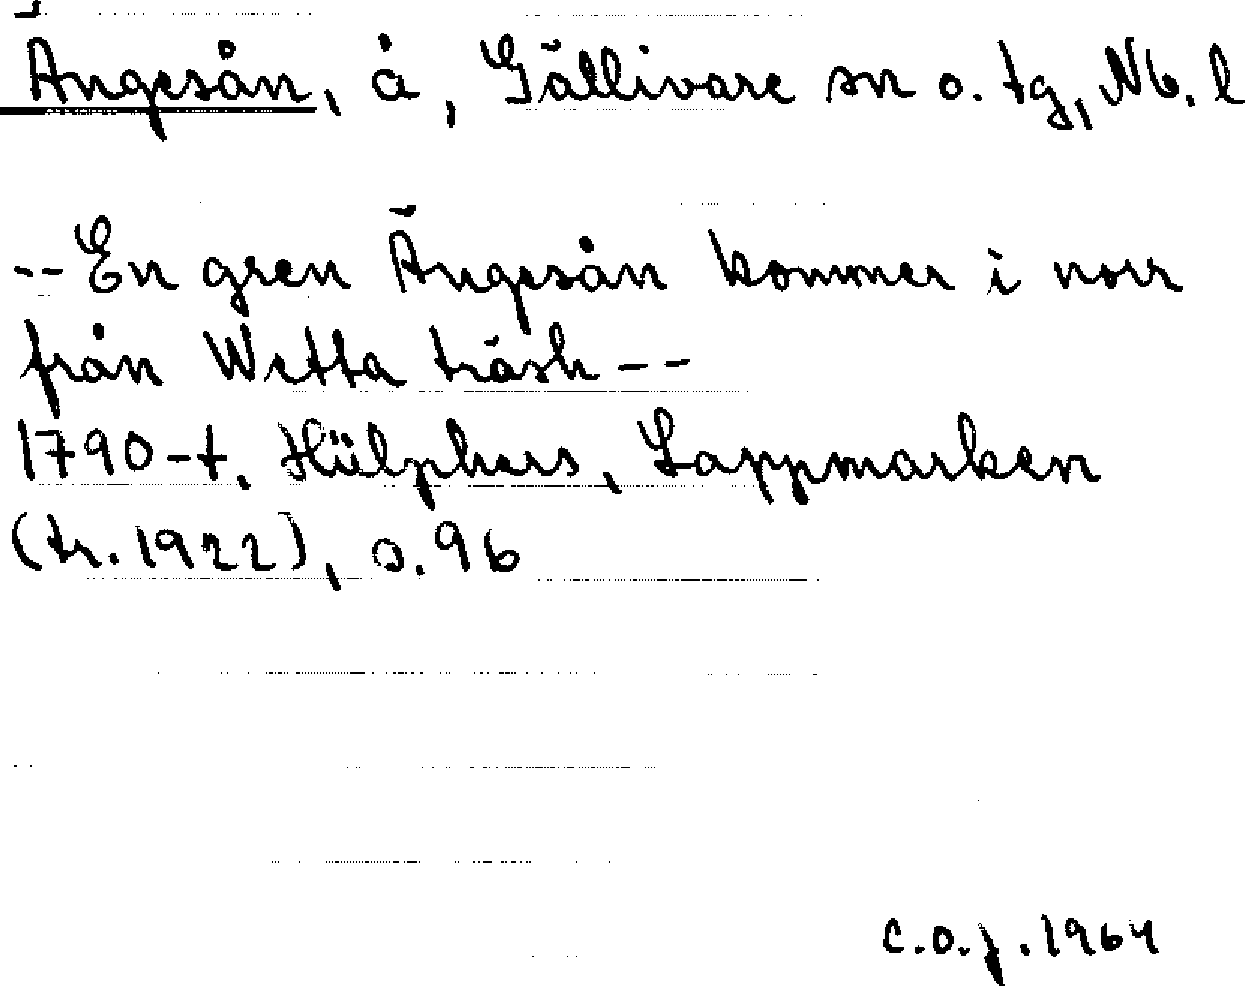 Ängesån, å, Gällivare sn o. tg, Nb. l
-- En gren Ängesån kommer i norr
från Wetta träsk --
1790-t. Hülphers, Lappmarken
(tr. 1922), s. 96
C.O.J. 1964